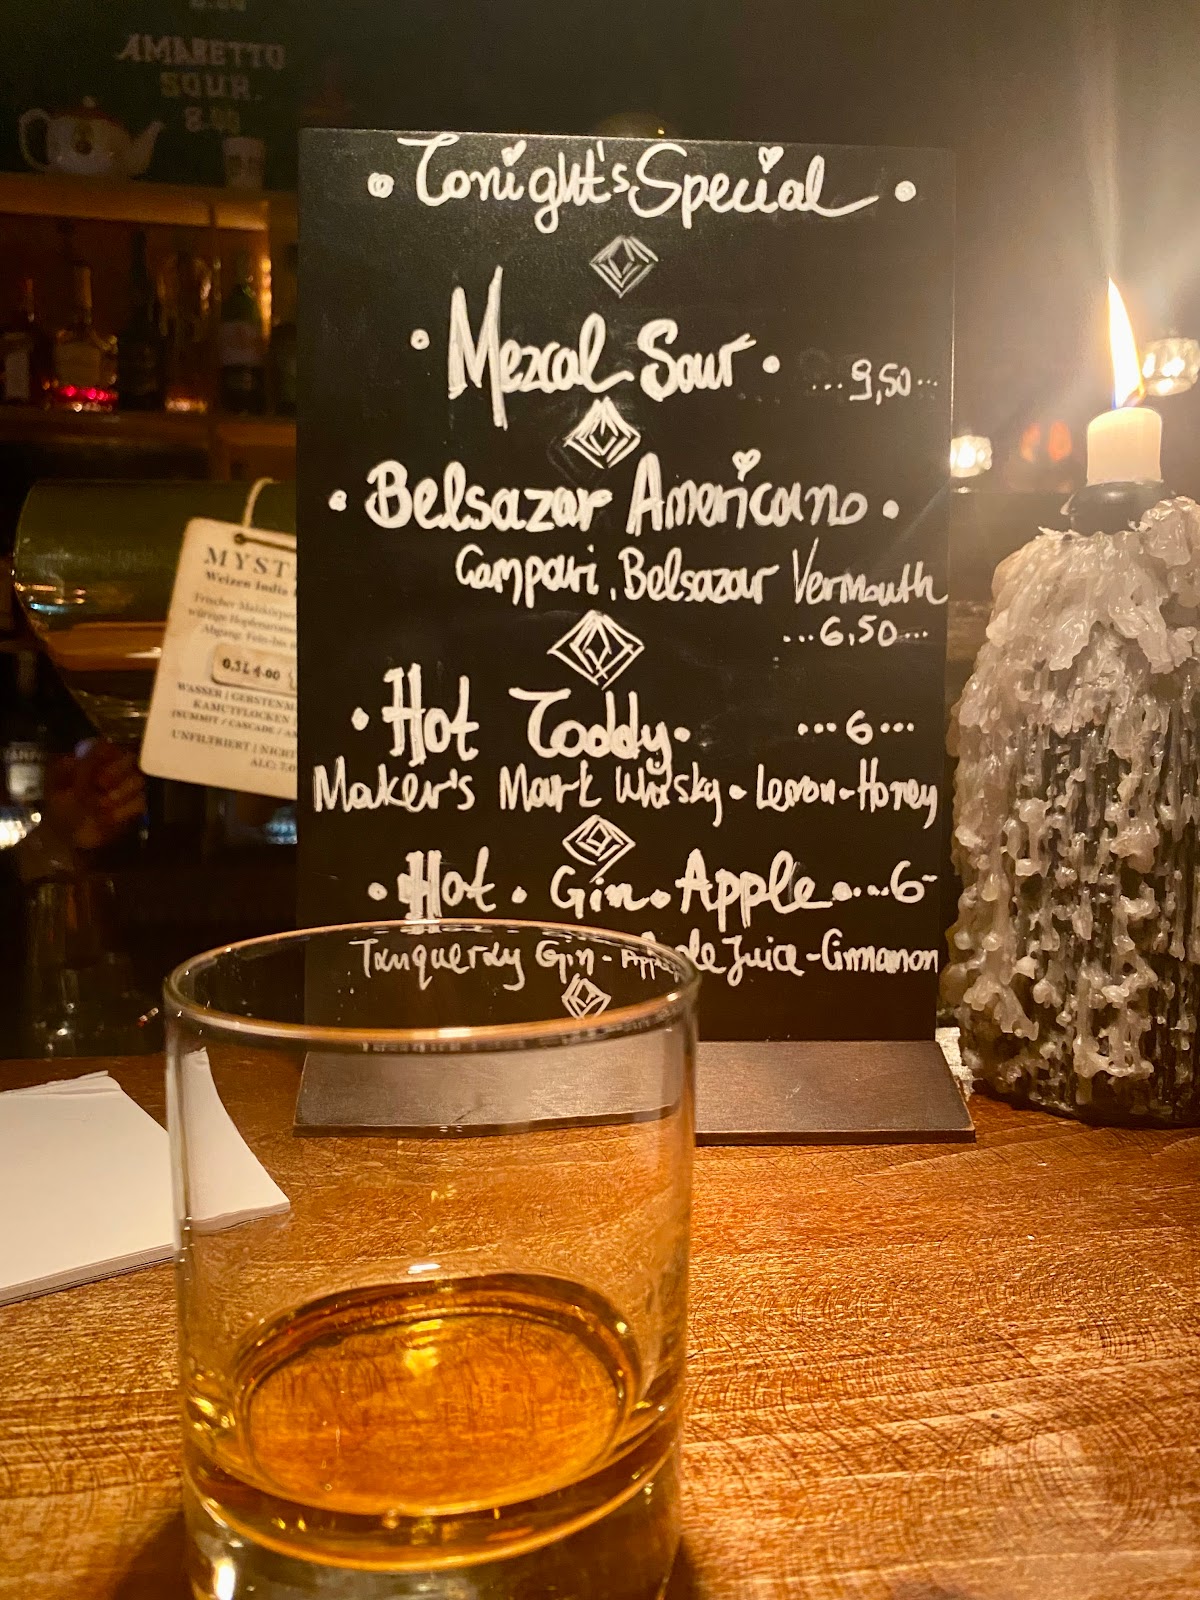 AMARETTO
SOUR.
8.00
• Tonight's Special •
• Mezcal Sour •
...9,50...
• Belsazar Americano •
Campari, Belsazar Vermouth
...6,50...
• Hot Toddy • ...6...
Maker's Mark Whisky - Lemon - Honey
• Hot • Gin • Apple ....6-
Tanqueray Gin - Apple Juice - Cinnamon
MYST
Weizen India
Frischer Malzkörper
würzige Hopfenaroma
Abgang. Fein-bis
0,3L 4.00
WASSER | GERSTENM
KAMUTFLOCKEN
(SUMMIT / CASCADE / A
UNFILTRIERT | NICHT
ALC: 7,0